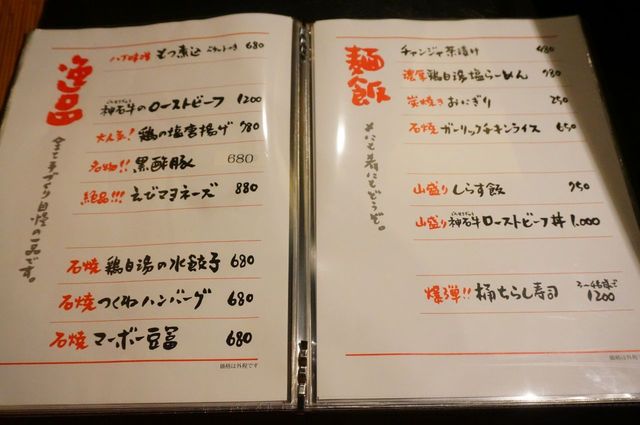 逸品
全て手づくり自慢の一品です。
八丁味噌 もつ煮込 680
神石牛のローストビーフ 1200
大人気! 鶏の塩唐揚げ 780
名物!! 黒酢豚 680
絶品!!! えびマヨネーズ 880
石焼 鶏白湯の水餃子 680
石焼 つくねハンバーグ 680
石焼 マーボー豆富 680
価格は外税です
麺飯
チャンジャ茶漬け 480
濃厚鶏白湯塩らーめん 780
炭焼き おにぎり 250
石焼 ガーリックチキンライス 650
山盛り しらす飯 750
山盛り 神石牛ローストビーフ丼 1,000
爆弾!! 桶ちらし寿司 3~4名様で 1200
価格は外税